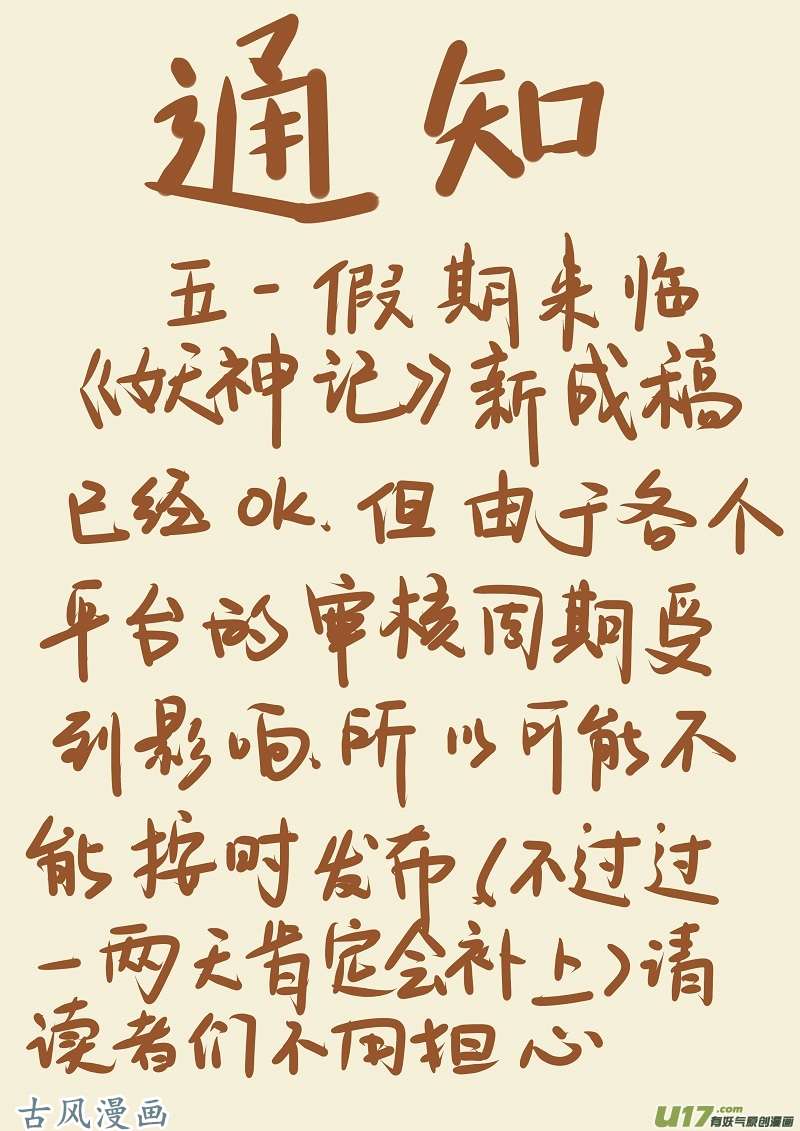 通知
五一假期来临
《妖神记》新成稿
已经OK、但由于各个
平台的审核周期受
到影响、所以可能不
能按时发布(不过过
一两天肯定会补上)请
读者们不用担心
古风漫画
U17.com
有妖气原创漫画